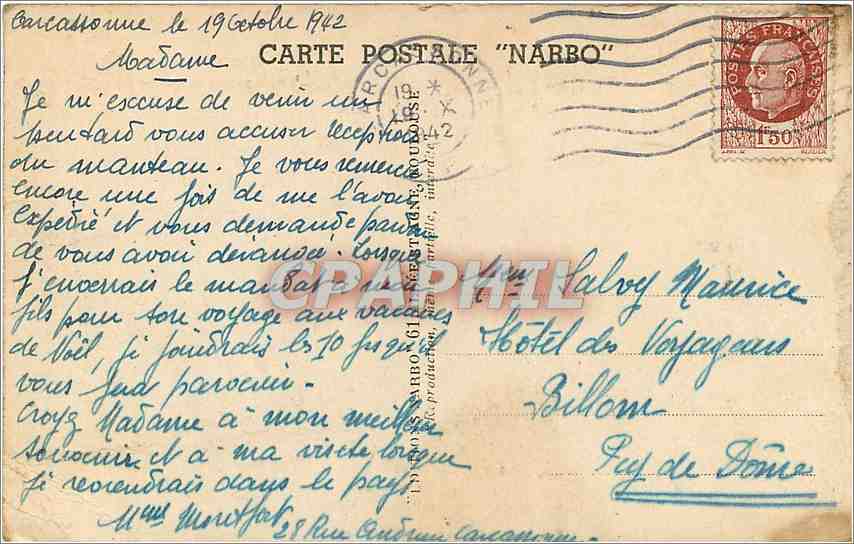 Carcassonne le 19 Octobre 1942
Madame
CARTE POSTALE "NARBO"
Je m'excuse de venir un
peu tard vous accuser réception
du manteau. Je vous remercie
encore une fois de me l'avoir
Expédié et vous demande pardon
de vous avoir dérangée. Lorsque
j'enverrais le mandat à mon
fils pour son voyage aux vacances
de Noël, je joindrais les 10 frs qu'il
vous fera parvenir -
Croyez Madame à mon meilleur
souvenir et à ma visite lorsque
je reviendrais dans le pays
Mme Montfort
28 Rue Andrieu Carcassonne
EDITIONS NARBO 61 TOULOUSE
Reproduction, même partielle, interdite
CARCASSONNE
19 *
19 X
42
POSTES FRANÇAISES
1F50
CPAPHIL
Mme Salvy Maurice
Hôtel des Voyageurs
Billom
Puy de Dôme